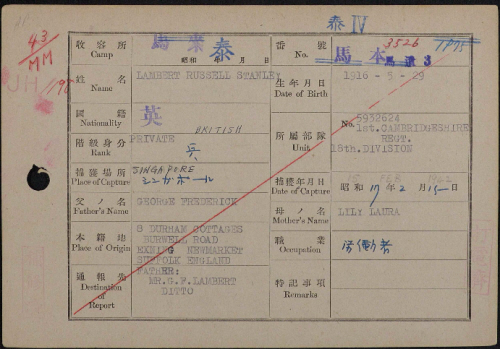 泰 IV
43
MM
JH
收容所 Camp
馬来 泰
昭和 年 月 日
番號 No.
馬本
3526
馬漬 3
姓名 Name
LAMBERT RUSSELL STANLEY
生年月日 Date of Birth
1916 - 5 - 29
國籍 Nationality
英
BRITISH
所屬部隊 Unit
No. 5932624
1st. CAMBRIDGESHIRE
REGT.
18th. DIVISION
階級身分 Rank
PRIVATE
兵
捕獲場所 Place of Capture
SINGAPORE
シンガポール
捕獲年月日 Date of Capture
15 FEB 1942
昭和 17 年 2 月 15 日
父ノ名 Father's Name
GEORGE FREDERICK
母ノ名 Mother's Name
LILY LAURA
本籍地 Place of Origin
8 DURHAM COTTAGES
BURWELL ROAD
EXNING NEWMARKET
SUFFOLK ENGLAND
職業 Occupation
労働者
通報先 Destination of Report
FATHER:
MR.G.F.LAMBERT
DITTO
特記事項 Remarks